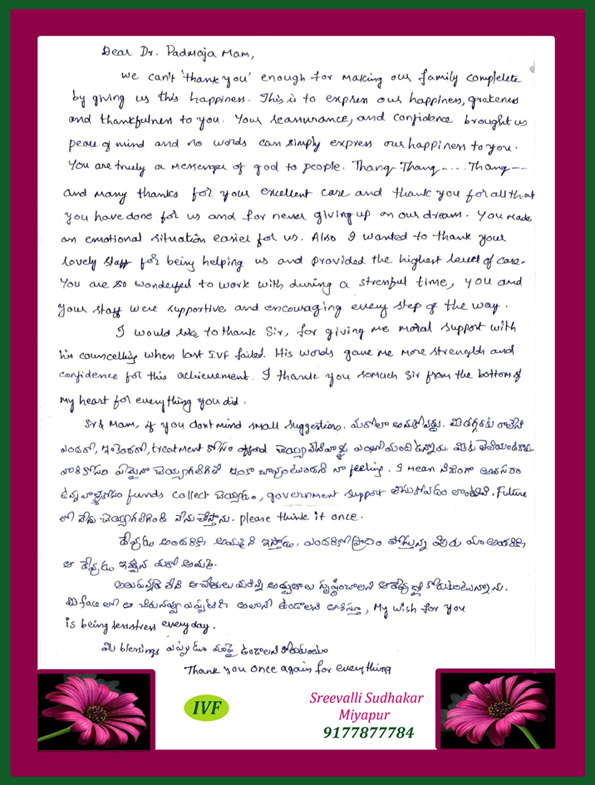 Dear Dr. Padmaja Mam,
We can't 'thank you' enough for making our family compelete
by giving us this happiness. This is to express our happiness, grateness
and thankfulness to you. Your reassurance, and confidence brought us
peace of mind and no words can simply express our happiness to you.
You are truely a messenger of god to people. Thang- Thang - - . . . Thang - -
and many thanks for your excellent care and thank you for all that
you have done for us and for never giving up on our dream. You made
an emotional situation easier for us. Also I wanted to thank your
lovely staff for being helping us and provided the highest level of care.
You are so wonderful to work with during a stressful time, you and
your staff were supportive and encouraging every step of the way.
I would like to thank Sir, for giving me moral support with
his councelling when last IVF failed. His words gave me more strength and
confidence for this achievement. I thank you somuch Sir from the bottom of
my heart for everything you did.
Sir & Mam, if you dont mind small suggestions. మరోలా అనుకోవద్దు. మీ దగ్గరకు రాలేని
ఎందరో, treatment కోసం afford చెయ్యలేని వాళ్ళు ఎంతోమంది ఉన్నారు
వారికోసం ఏమైనా చెయ్యగలిగితే ఇంకా బావుంటుందని నా feeling. I mean నిజంగా అవసరం
ఉన్న వాళ్ళకోసం funds collect చెయ్యడం, government support తీసుకోవడం లాంటివి. Future
లో నేను చెయ్యగలిగింది నేను చేస్తాను. please think it once.
దేవుడు అందరికి అమ్మని ఇస్తాడు. ఎందరికో ప్రాణం పోస్తున్న మీరు మా అందరికి
ఆ దేవుడు ఇచ్చిన మరో అమ్మ.
అలుపన్నది లేని ఆ చేతులు మరిన్ని అద్భుతాలు సృష్టించాలని ఆ దేవుణ్ణి కోరుకుంటున్నాను.
మీ face లో ఆ చిరునవ్వు ఎప్పటికి అలానే ఉండాలని ఆశిస్తూ, My wish for you
is being lessstress everyday.
మీ blessings ఎప్పుడూ మాపై ఉండాలని కోరుకుంటూ
Thank you once again for everything
IVF
Sreevalli Sudhakar
Miyapur
9177877784